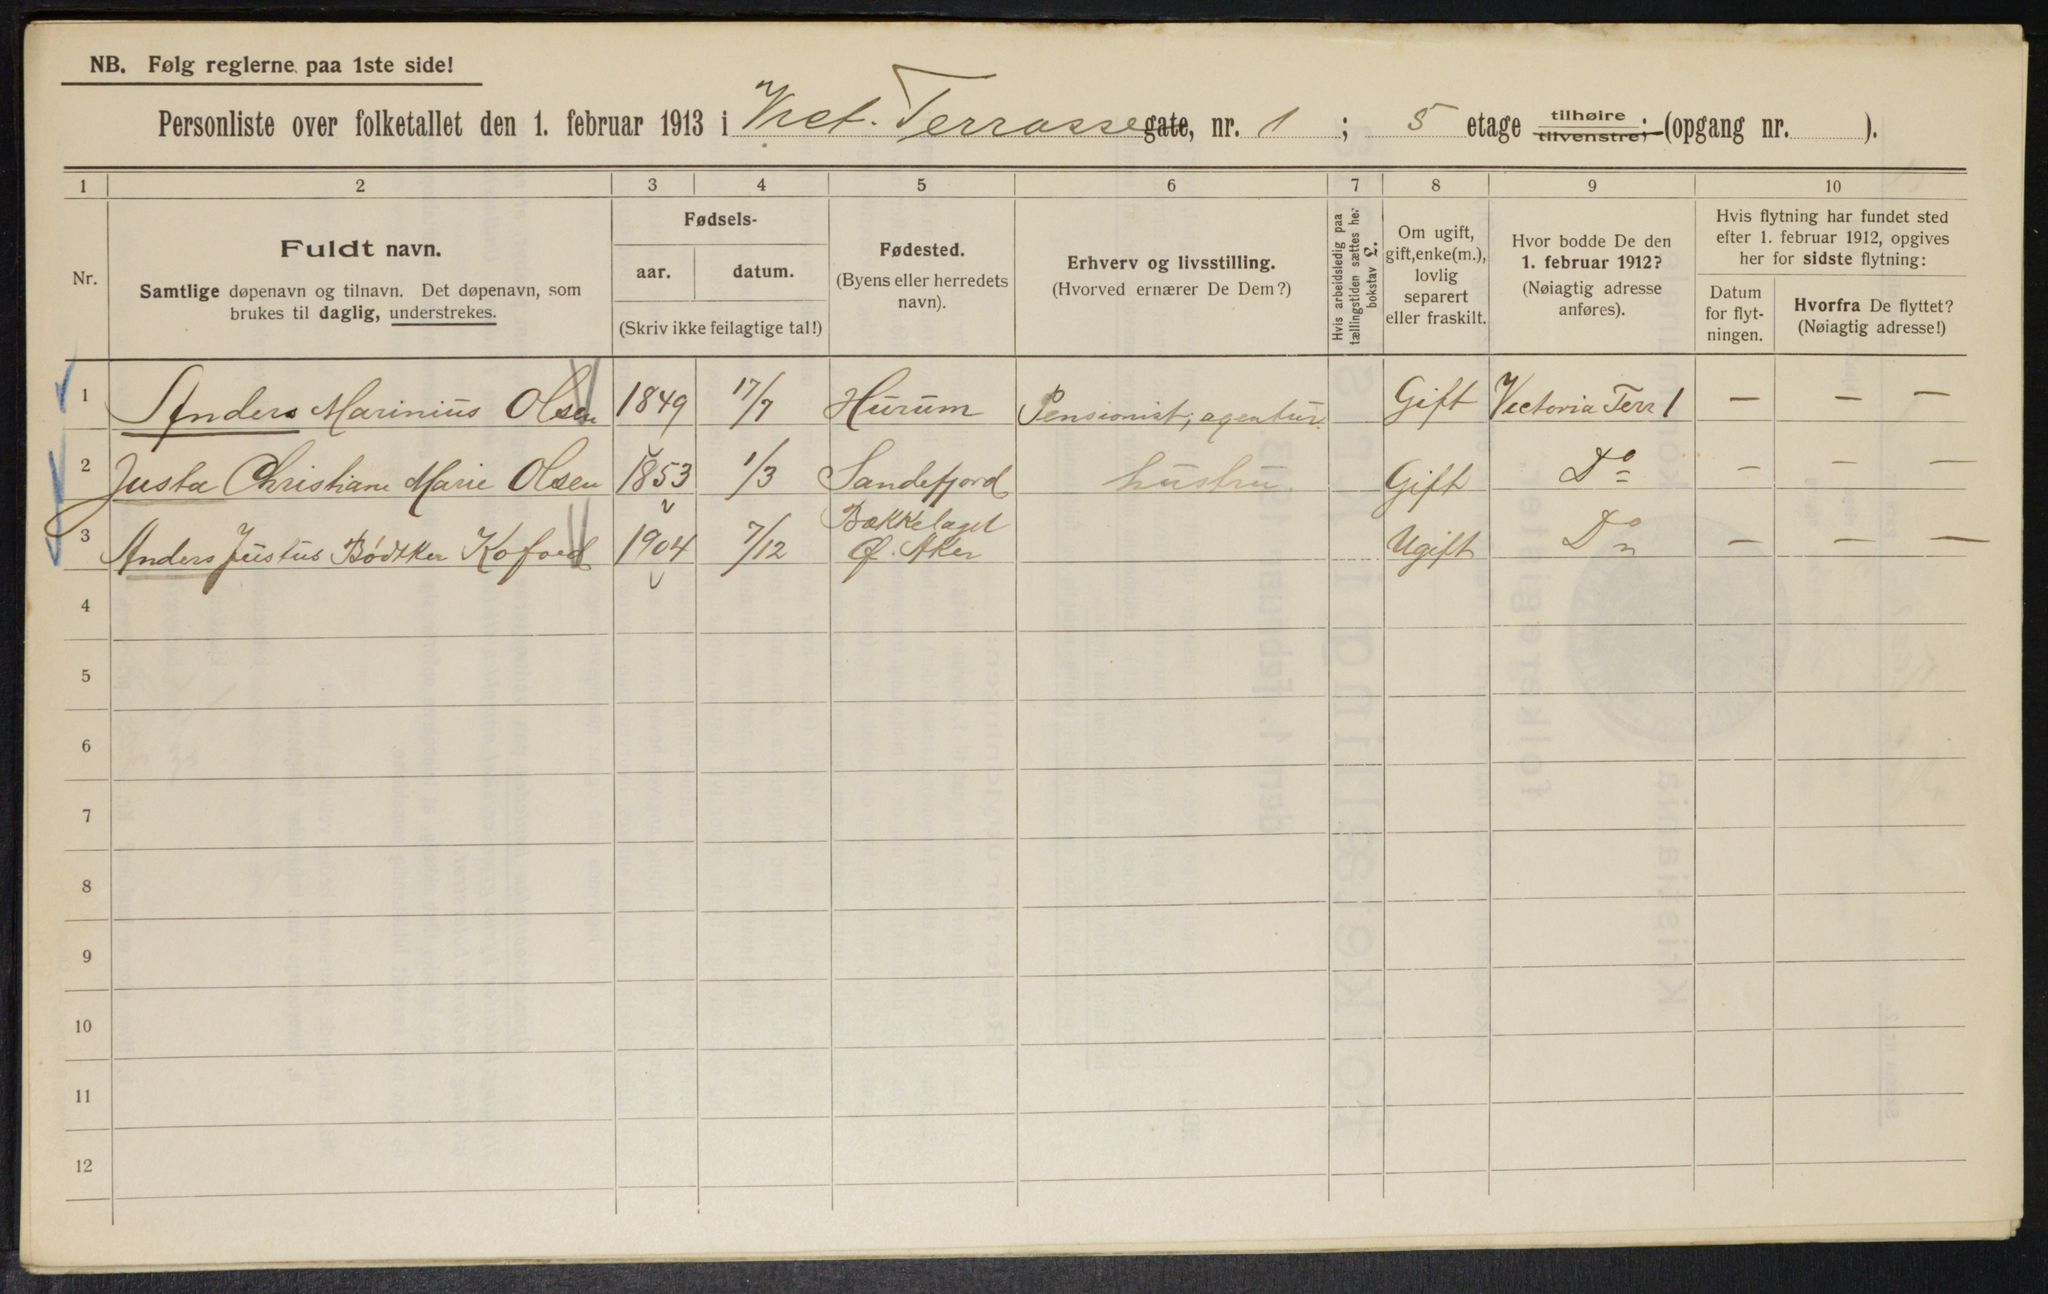 NB. Følg reglerne paa 1ste side!
Personliste over folketallet den 1. februar 1913 i Vict. Terrasse gate, nr. 1 ; 5 etage tilhøire tilvenstre; (opgang nr. ).
1 2 3 4 5 6 7 8 9 10
Nr.
Fuldt navn.
Samtlige døpenavn og tilnavn. Det døpenavn, som
brukes til daglig, understrekes.
Fødsels-
aar.
datum.
(Skriv ikke feilagtige tal!)
Fødested.
(Byens eller herredets
navn).
Erhverv og livsstilling.
(Hvorved ernærer De Dem?)
Hvis arbeidsledig paa
tællingstiden sættes her
bokstav L.
Om ugift,
gift, enke(m.),
lovlig
separert
eller fraskilt.
Hvor bodde De den
1. februar 1912?
(Nøiagtig adresse
anføres).
Hvis flytning har fundet sted
efter 1. februar 1912, opgives
her for sidste flytning:
Datum
for flyt-
ningen.
Hvorfra De flyttet?
(Nøiagtig adresse!)
1 Anders Marinius Olsen 1849 17/7 Hurum Pensionist, agentur. Gift Victoria Terr 1 — — —
2 Justa Christiane Marie Olsen 1853 1/3 Sandefjord hustru Gift Do — — —
3 Anders Justus Bødtker Kofoed 1904 7/12 Bækkelaget Ø. Aker Ugift Do — — —
4
5
6
7
8
9
10
11
12